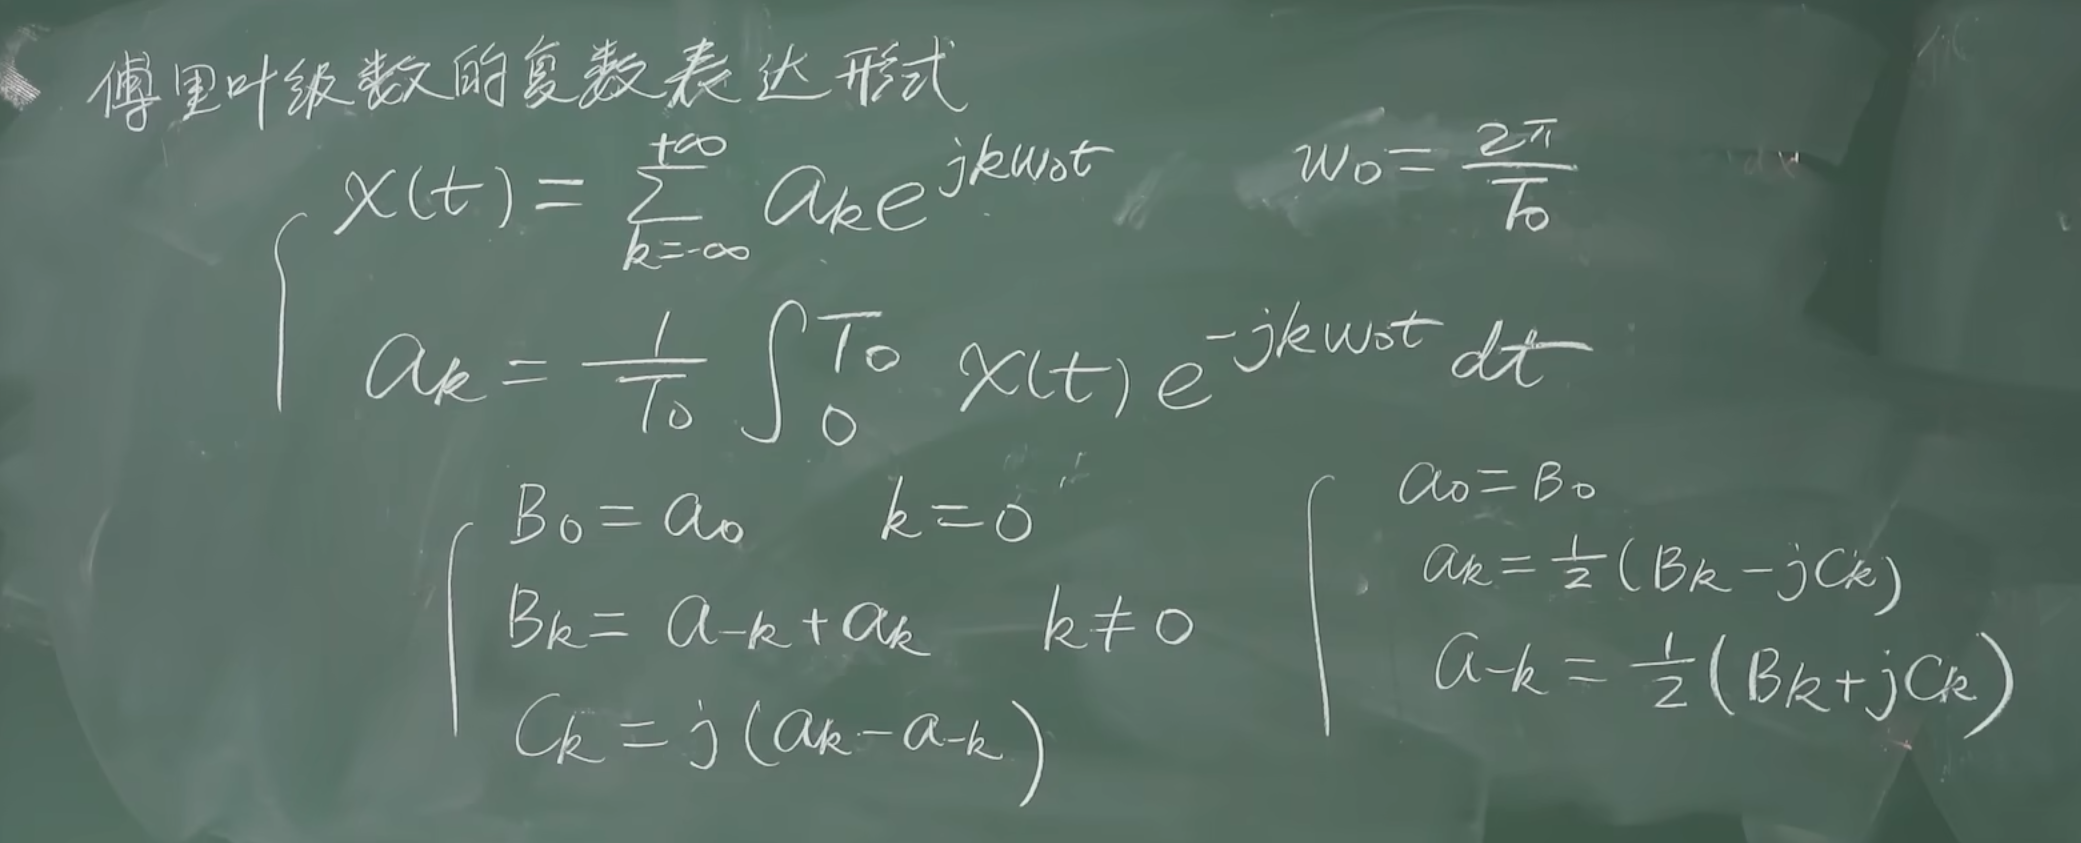 傅里叶级数的复数表达形式
x(t) = \sum_{k=-∞}^{+∞} a_k e^{jkw_0t}    w_0 = \frac{2π}{T_0}
a_k = \frac{1}{T_0} \int_0^{T_0} x(t) e^{-jkw_0t} dt
B_0 = a_0    k = 0
B_k = a_{-k} + a_k    k ≠ 0
C_k = j(a_k - a_{-k})
a_0 = B_0
a_k = \frac{1}{2}(B_k - jC_k)
a_{-k} = \frac{1}{2}(B_k + jC_k)